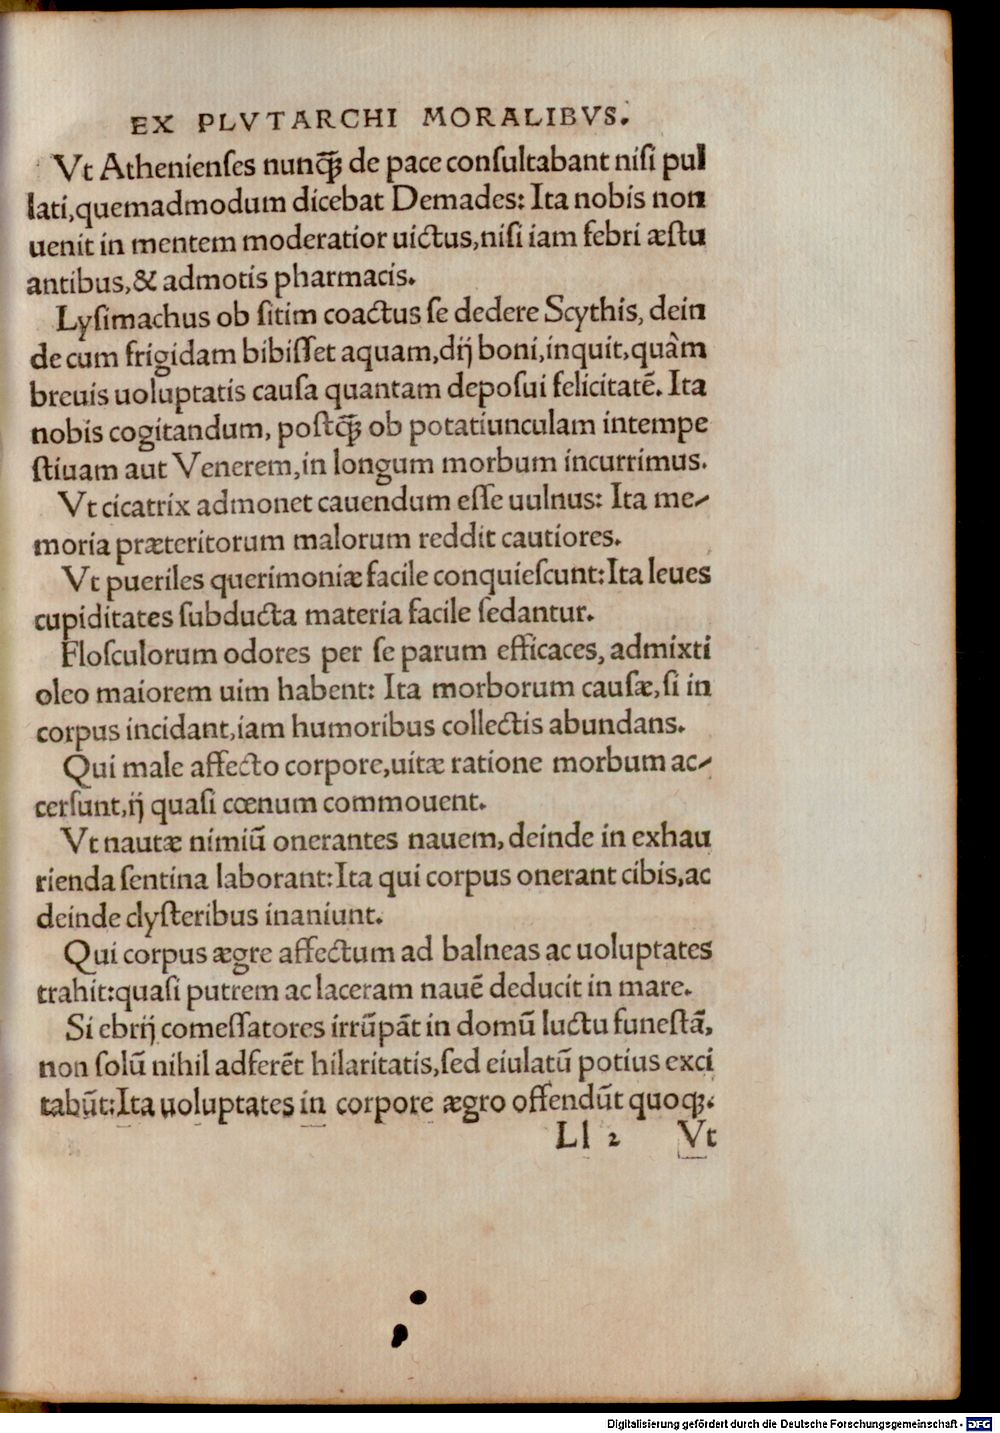 EX PLVTARCHI MORALIBVS.
Vt Athenienſes nunꝗ̃ de pace conſultabant niſi pul
lati,quemadmodum dicebat Demades: Ita nobis non
uenit in mentem moderatior uictus,niſi iam febri æſtu
antibus,& admotis pharmacis.
Lyſimachus ob ſitim coactus ſe dedere Scythis, dein
de cum frigidam bibiſſet aquam,dij boni,inquit,quàm
breuis uoluptatis cauſa quantam depoſui felicitatẽ. Ita
nobis cogitandum, poſtꝗ̃ ob potatiunculam intempe
ſtiuam aut Venerem,in longum morbum incurrimus.
Vt cicatrix admonet cauendum eſſe uulnus: Ita me-
moria præteritorum malorum reddit cautiores.
Vt pueriles querimoniæ facile conquieſcunt: Ita leues
cupiditates ſubducta materia facile ſedantur.
Floſculorum odores per ſe parum efficaces, admixti
oleo maiorem uim habent: Ita morborum cauſæ,ſi in
corpus incidant,iam humoribus collectis abundans.
Qui male affecto corpore,uitæ ratione morbum ac-
cerſunt,ij quaſi cœnum commouent.
Vt nautæ nimiũ onerantes nauem, deinde in exhau
rienda ſentina laborant: Ita qui corpus onerant cibis,ac
deinde clyſteribus inaniunt.
Qui corpus ægre affectum ad balneas ac uoluptates
trahit:quaſi putrem ac laceram nauẽ deducit in mare.
Si ebrij comeſſatores irrũpãt in domũ luctu funeſtã,
non ſolũ nihil adferẽt hilaritatis,ſed eiulatũ potius exci
tabũt:Ita uoluptates in corpore ægro offendũt quoqꝫ.
Ll 2 Vt
Digitalisierung gefördert durch die Deutsche Forschungsgemeinschaft - DFG